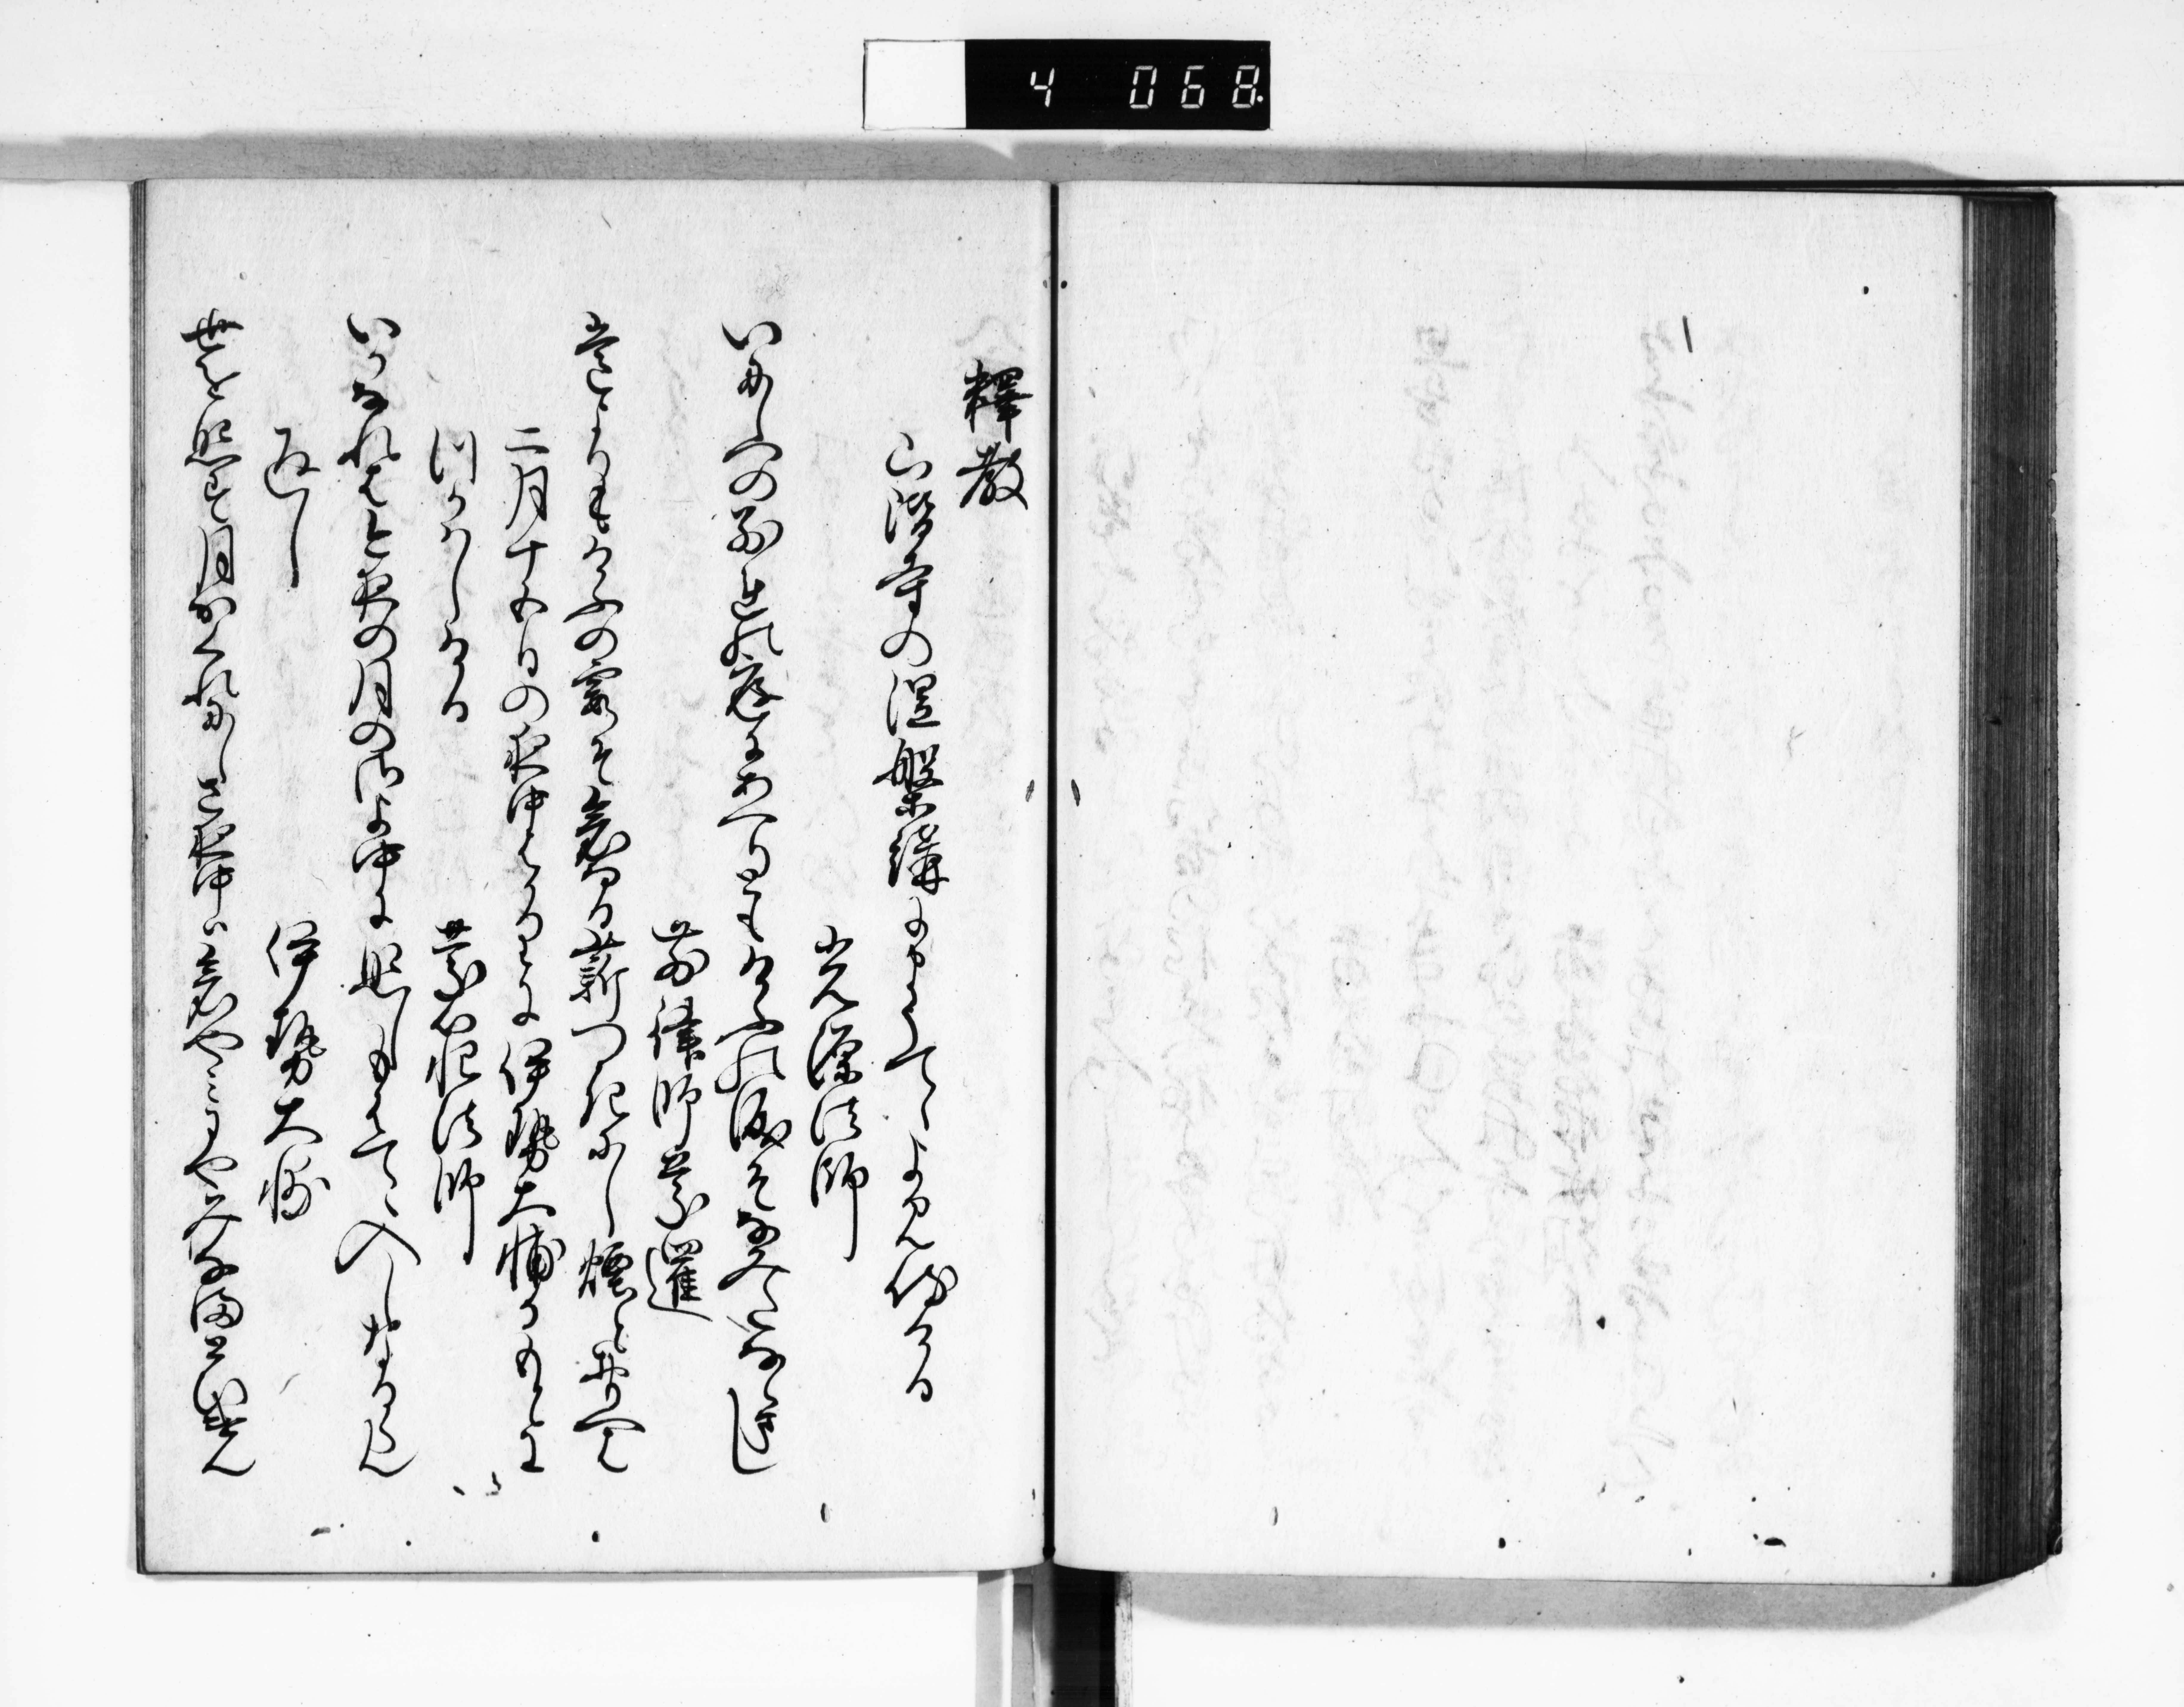 4 068.
釋教
山階寺の涅槃講にまうてゝよみ侍ける
光源法師
いにしへの別の庭にあへりともけふの涙そなみたならまし
前律師慶暹
常よりもけふの霞そあはれなる薪つきにし煙とおもへは
二月十五日の夜中はかりに伊勢大輔かもとに
つかはしける
慶範法師
いかなれはこよひの月のさよ中に照しもはてゝ入しなるらん
返し
伊勢大輔
世を照す月かくれにしさ夜中はあはれやみにやみなまとひけん